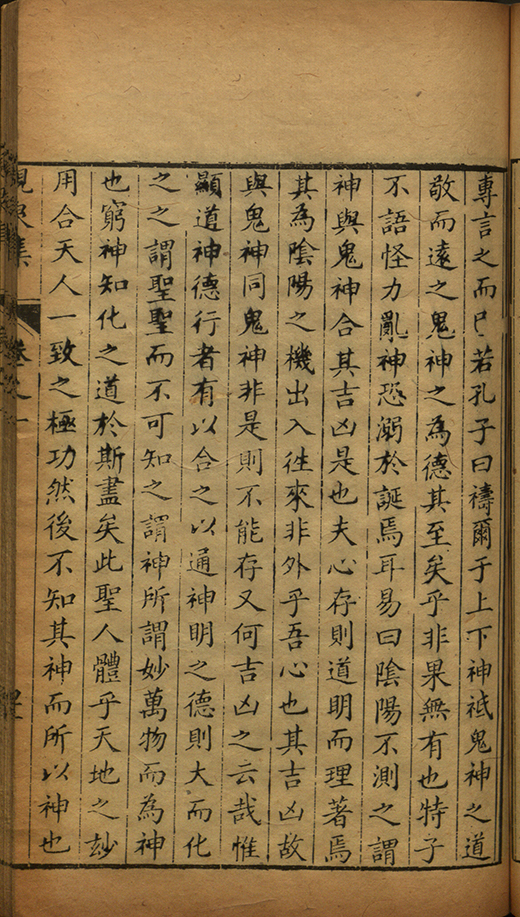 專言之而已若孔子曰禱爾于上下神祗鬼神之道
敬而遠之鬼神之為德其至矣乎非果無有也特子
不語怪力亂神恐溺於誕焉耳易曰陰陽不測之謂
神與鬼神合其吉凶是也夫心存則道明而理著焉
其為陰陽之機出入徃來非外乎吾心也其吉凶故
與鬼神同鬼神非是則不能存又何吉凶之云哉惟
顯道神德行者有以合之以通神明之德則大而化
之之謂聖聖而不可知之謂神所謂妙萬物而為神
也窮神知化之道於斯盡矣此聖人體乎天地之玅
用合天人一致之極功然後不知其神而所以神也